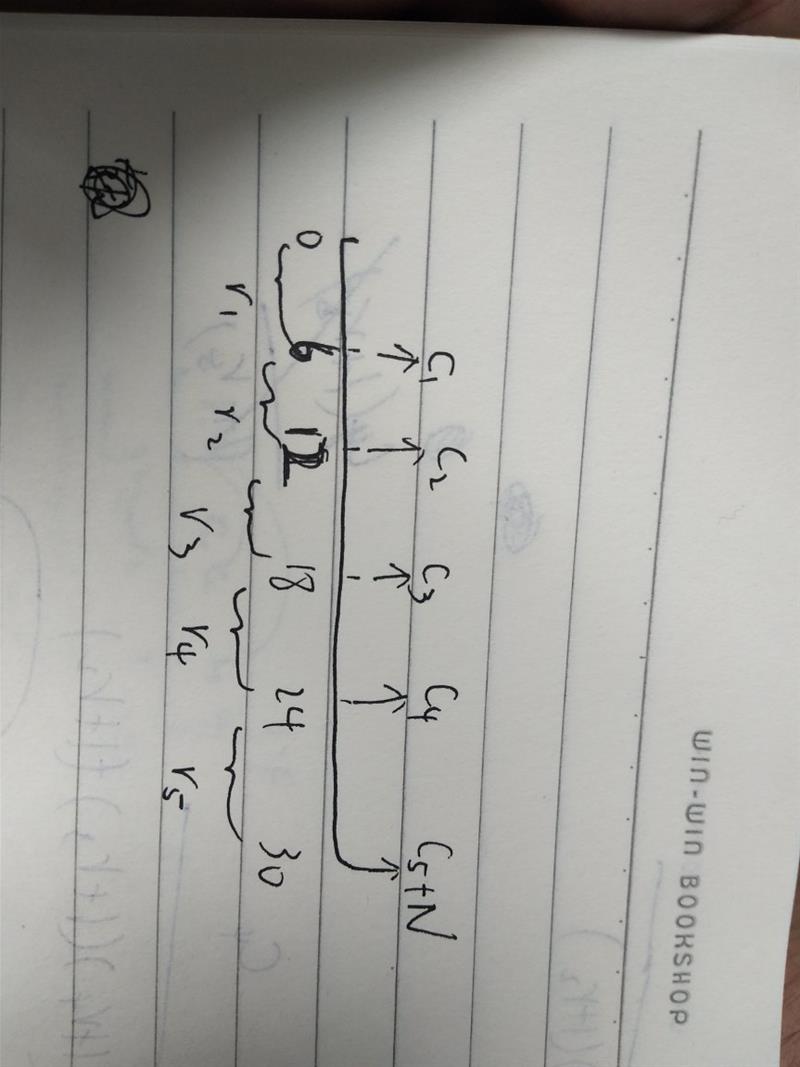 WIN-WIN BOOKSHOP
C₁ C₂ C₃ C₄ C₅+N
0 6 12 18 24 30
r₁ r₂ r₃ r₄ r₅